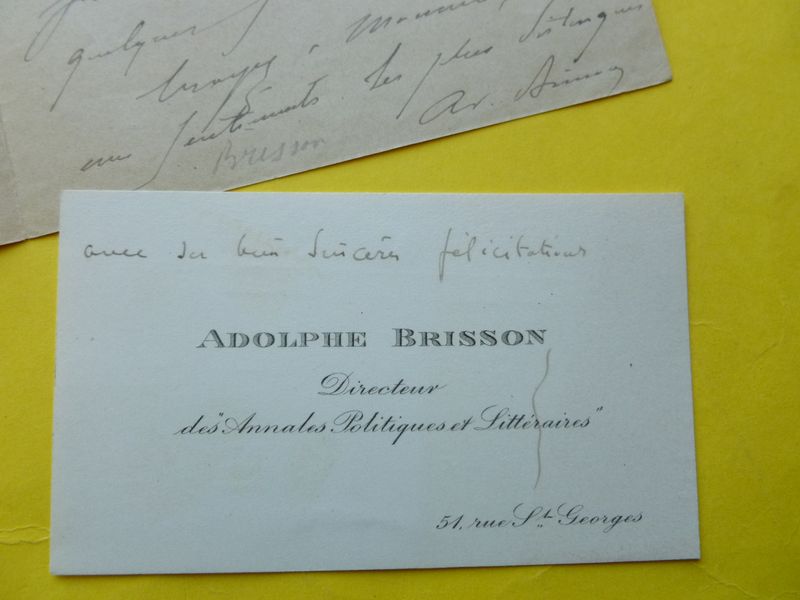 quelques
Croyez, Monsieur,
aux sentiments les plus distingués
Ad. Brisson
Brisson
avec ses bien sincères félicitations
ADOLPHE BRISSON
Directeur
des "Annales Politiques et Littéraires"
51, rue St. Georges